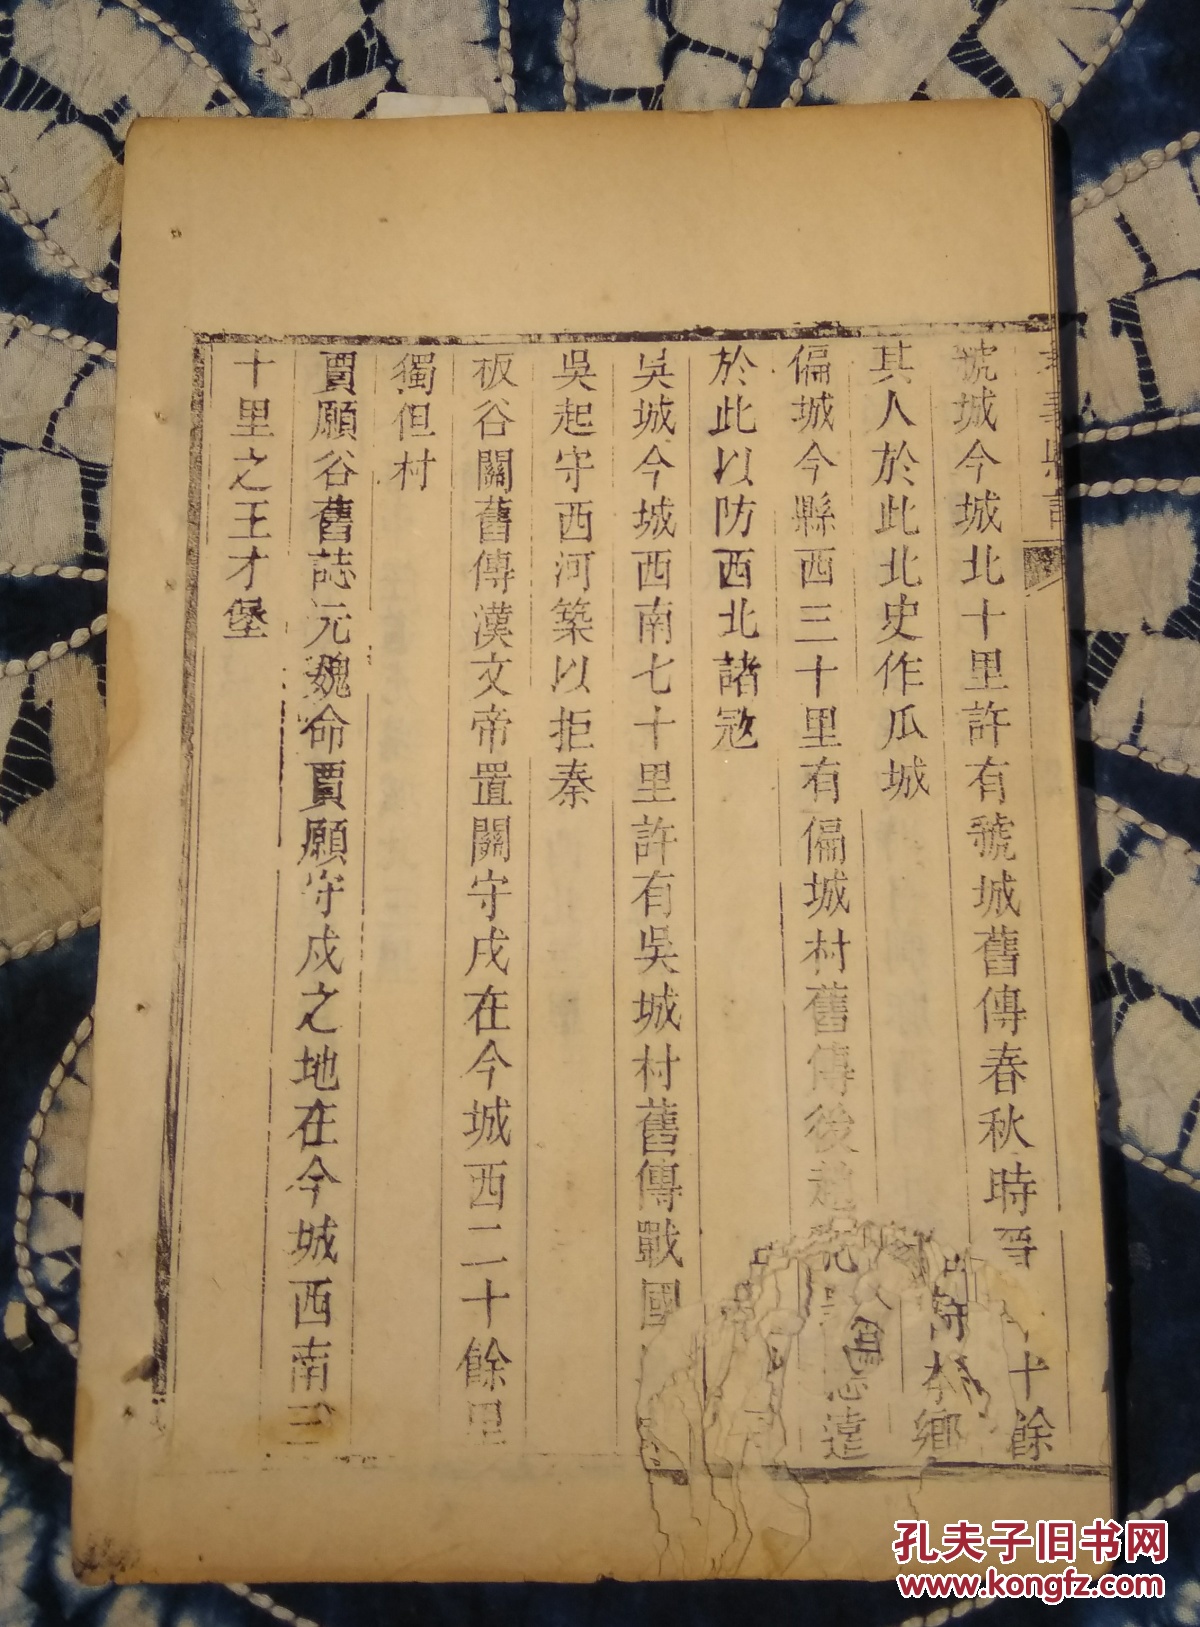 虢城今城北十里許有虢城舊傳春秋時晉 十餘
其人於此北史作瓜城
偏城今縣西三十里有偏城村舊傳後趙 遣
於此以防西北諸冦
吳城今城西南七十里許有吳城村舊傳戰國
吳起守西河築以拒秦
板谷關舊傳漢文帝置關守戍在今城西二十餘里
獨但村
賈願谷舊誌元魏命賈願守戍之地在今城西南三
十里之王才堡
孔夫子旧书网
www.kongfz.com